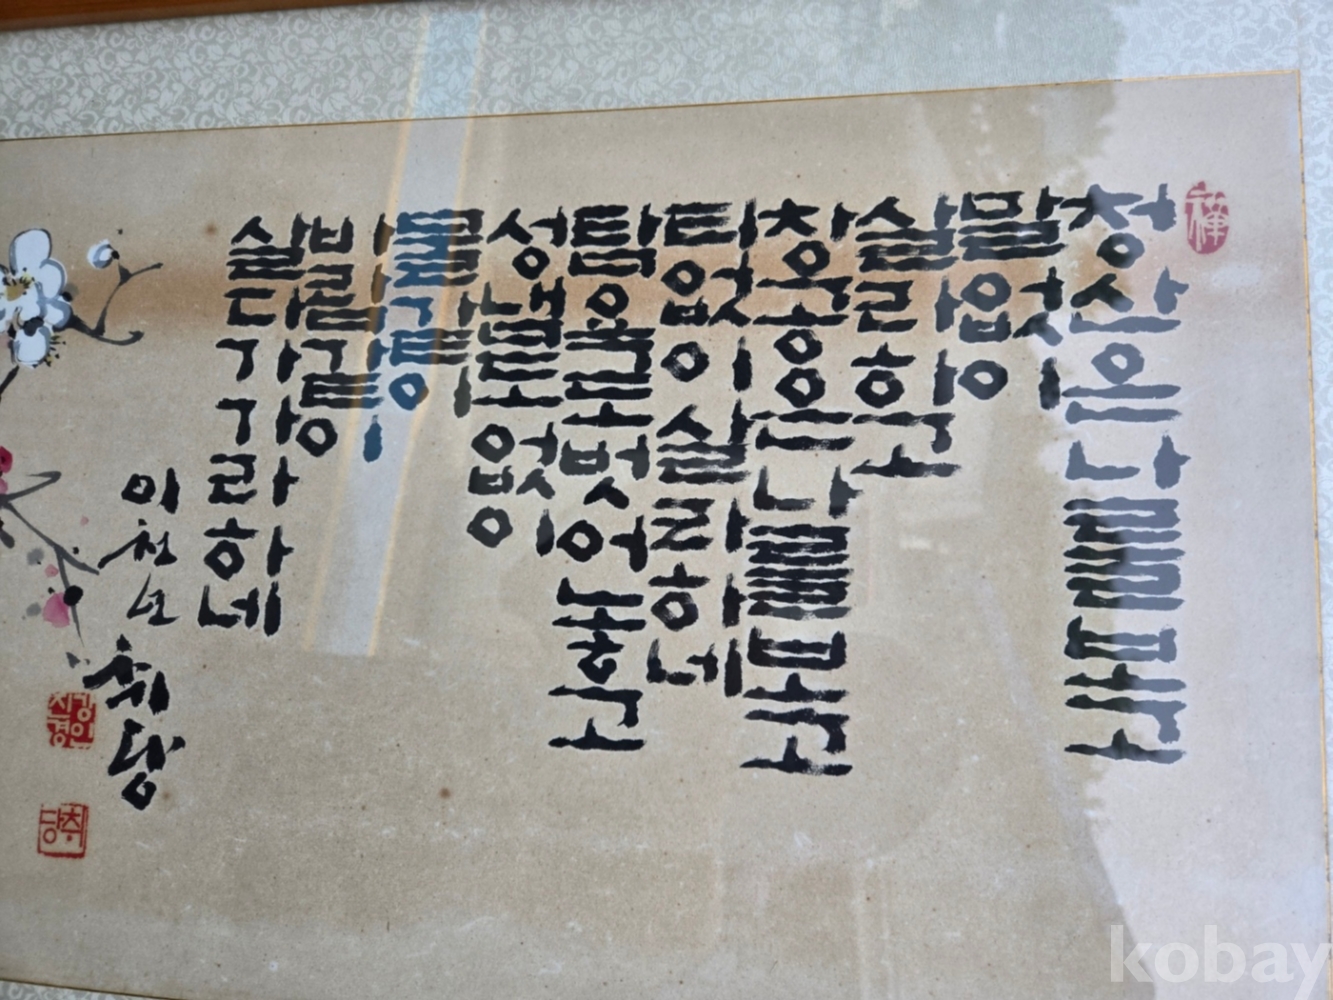 청산은 나를보고
말없이
살라하고
창공은 나를보고
티없이 살라하네
탐욕도 벗어놓고
성냄도 없이
물같이
바람같이
살다가 가라하네
취당
취당
kobay